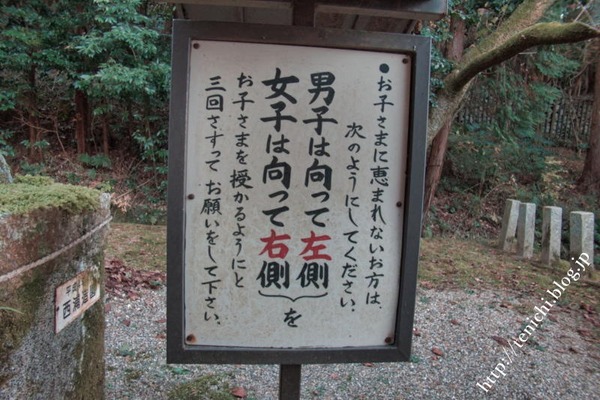 ●お子さまに恵まれないお方は、
次のようにしてください。
男子は向って左側
女子は向って右側
を
お子さまを授かるようにと
三回さすってお願いをして下さい。
http://tenichi.blog.jp